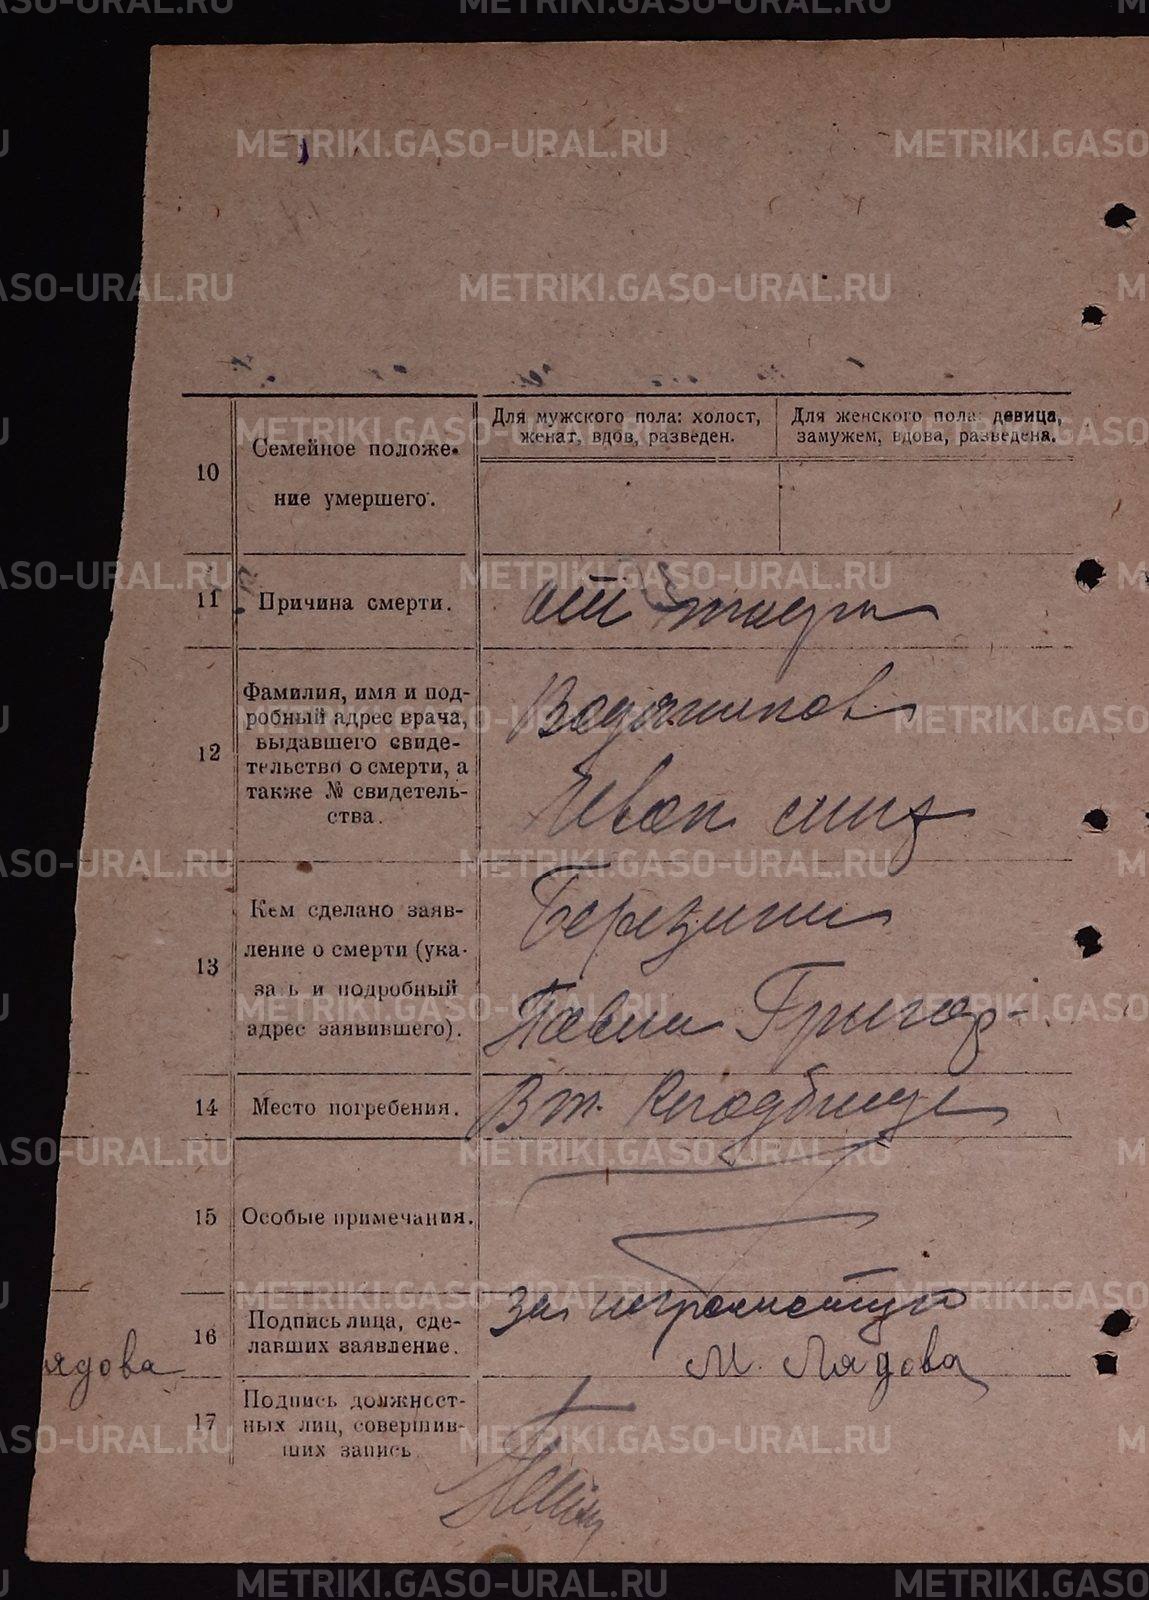 METRIKI.GASO-URAL.RU
10
Семейное положе-
ние умершего.
Для мужского пола: холост,
женат, вдов, разведен.
Для женского пола: девица,
замужем, вдова, разведена.
11
Причина смерти.
от
12
Фамилия, имя и под-
робный адрес врача,
выдавшего свиде-
тельство о смерти, а
также № свидетель-
ства.
13
Кем сделано заяв-
ление о смерти (ука-
за ь и подробный
адрес заявившего).
Григор-
14
Место погребения.
В т. Кладбище
15
Особые примечания.
16
Подпись лица, сде-
лавших заявление.
За неграмотную
М. Лядова
ядова
17
Подпись должност-
ных лиц, совершив-
ших запись